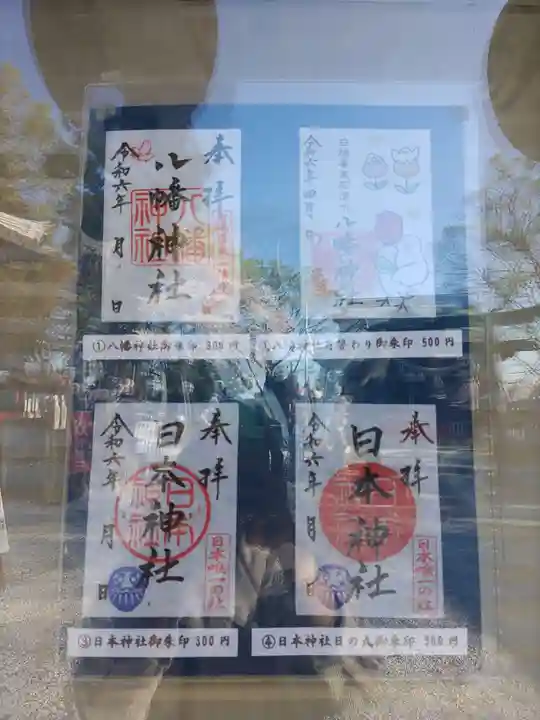 奉拝
八幡神社
令和六年 月 日
八幡神社
令和六年 四月 日
①八幡神社御朱印 300円
御朱印 500円
奉拝
日本神社
令和六年 月 日
日本唯一の社
奉拝
日本神社
令和六年 月 日
日本唯一の社
③日本神社御朱印 300円
④日本神社日の丸御朱印 300円